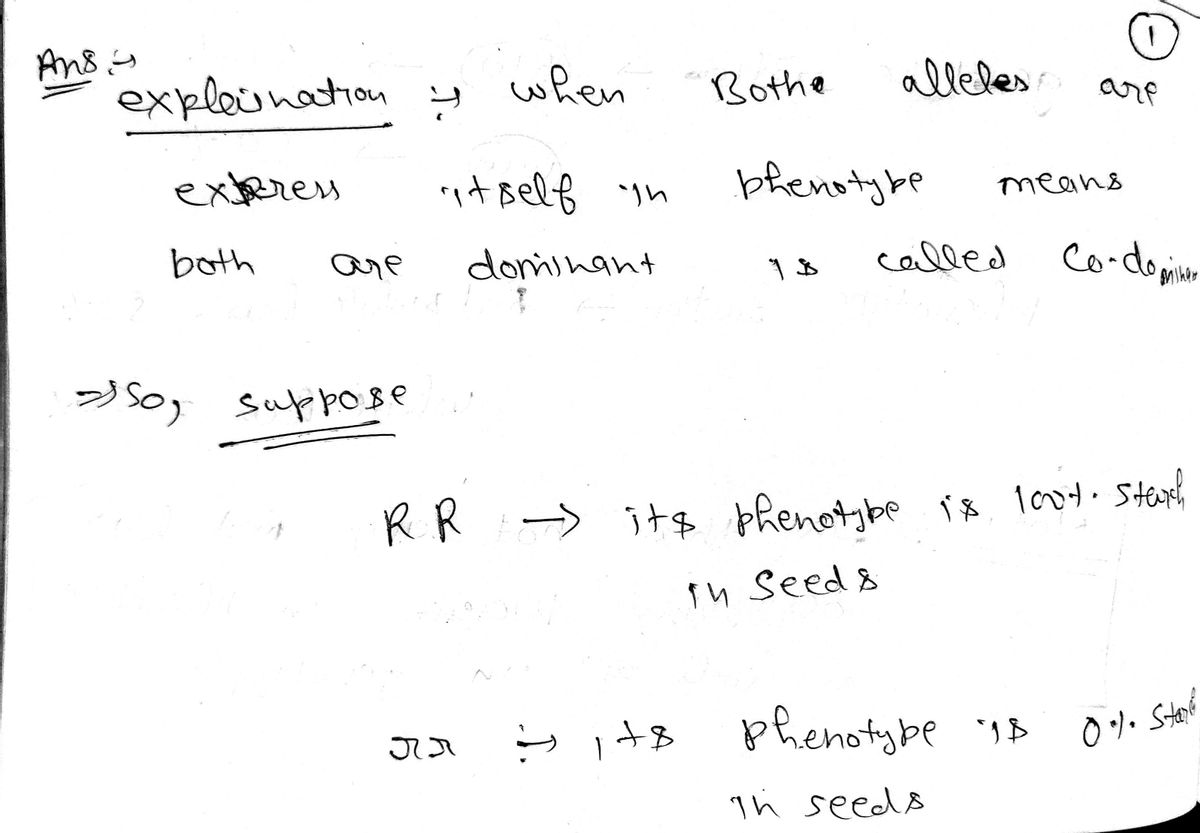 1
Ans :→
explaination :→ when Bothe alleles are
express itself in phenotype means
both are dominant is called Co-dominan
⇒ So, suppose
RR → its phenotype is 100%. Starch
in Seeds
rr :→ its phenotype is 0%. Starch
in seeds